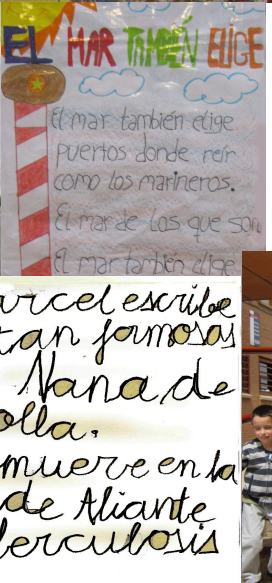 EL MAR TAMBIÉN ELIGE
El mar también elige
puertos donde reir
como los marineros.
El mar de los que son
El mar también elige
arcel escribe
tan famosas
Nana de
olla.
muere en la
de Aliante
erculosis